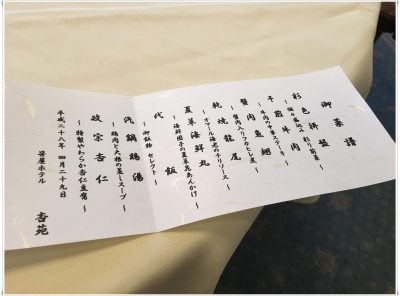 御菜譜
彩色拼盤
～ 種々盛込み 彩り前菜 ～
干煎牛肉
～ 牛肉の中華ステーキ ～
蟹肉魚翅
～ 蟹肉入りフカヒレ煮 ～
乾焼龍尾
～ オマール海老のチリソース ～
夏草海鮮丸
～ 海鮮団子の夏草花あんかけ ～
代飯
～ 御飯物 セレクト ～
汽鍋鶏湯
～ 鶏肉と大根の蒸しスープ ～
政宗杏仁
～ 特製やわらか杏仁豆腐 ～
平成二十八年 四月二十九日
笹屋ホテル 杏苑